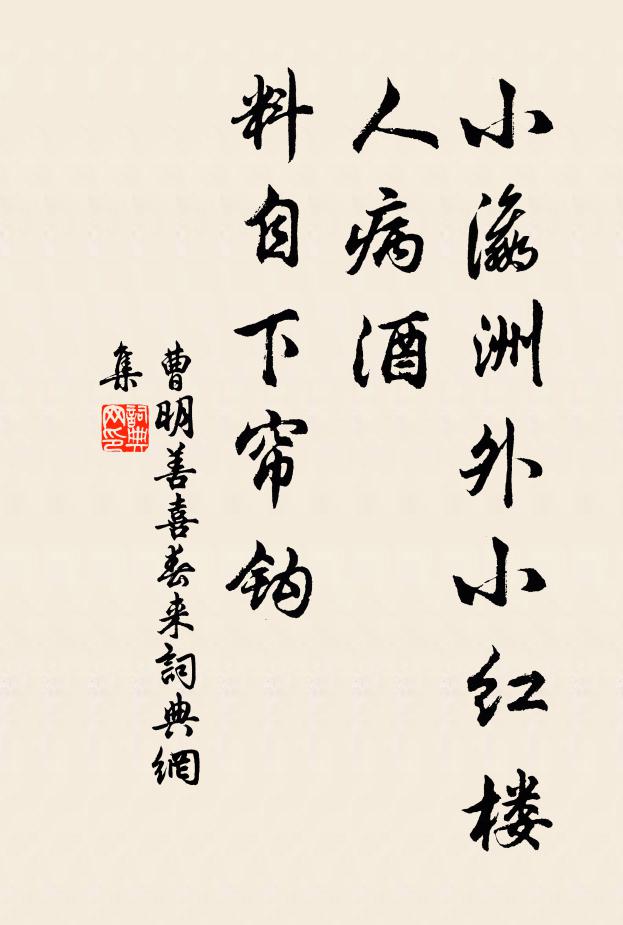 小瀛洲外小红楼
人病酒
料自下帘钩
曹明善喜春来詞典網
集
詞典网印